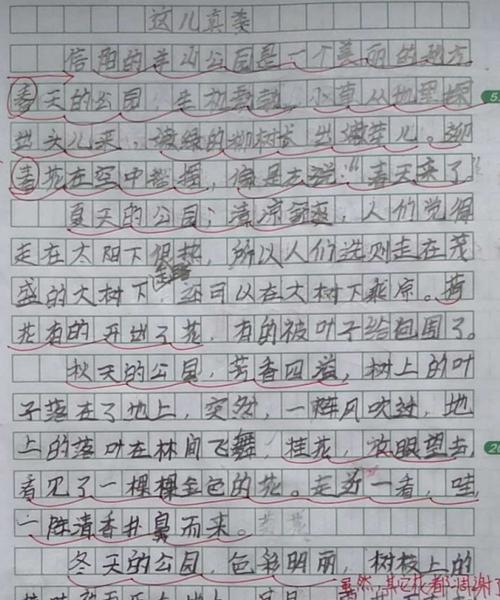 这儿真美
信阳的羊山公园是一个美丽的地方
春天的公园，生机勃勃，小草从地里探
出头儿来，嫩绿的柳树长出嫩芽儿。柳
春花在空中摇摆，像是在说：“春天来了。”
夏天的公园；清凉舒爽，人们觉得
走在太阳下很热，所以人们选则走在茂
盛的大树下，还可以在大树下乘凉。荷
花有的开出了花，有的被叶子给包围了。
秋天的公园，芳香四溢，树上的叶
子落在了地上，突然，一阵风吹过，地
上的落叶在林间飞舞，桂花，放眼望去，
看见了一棵棵金色的花。走近一看，哇
一阵清香扑鼻而来。
冬天的公园，色彩明丽，树枝上的
虽然，其它花都凋谢了